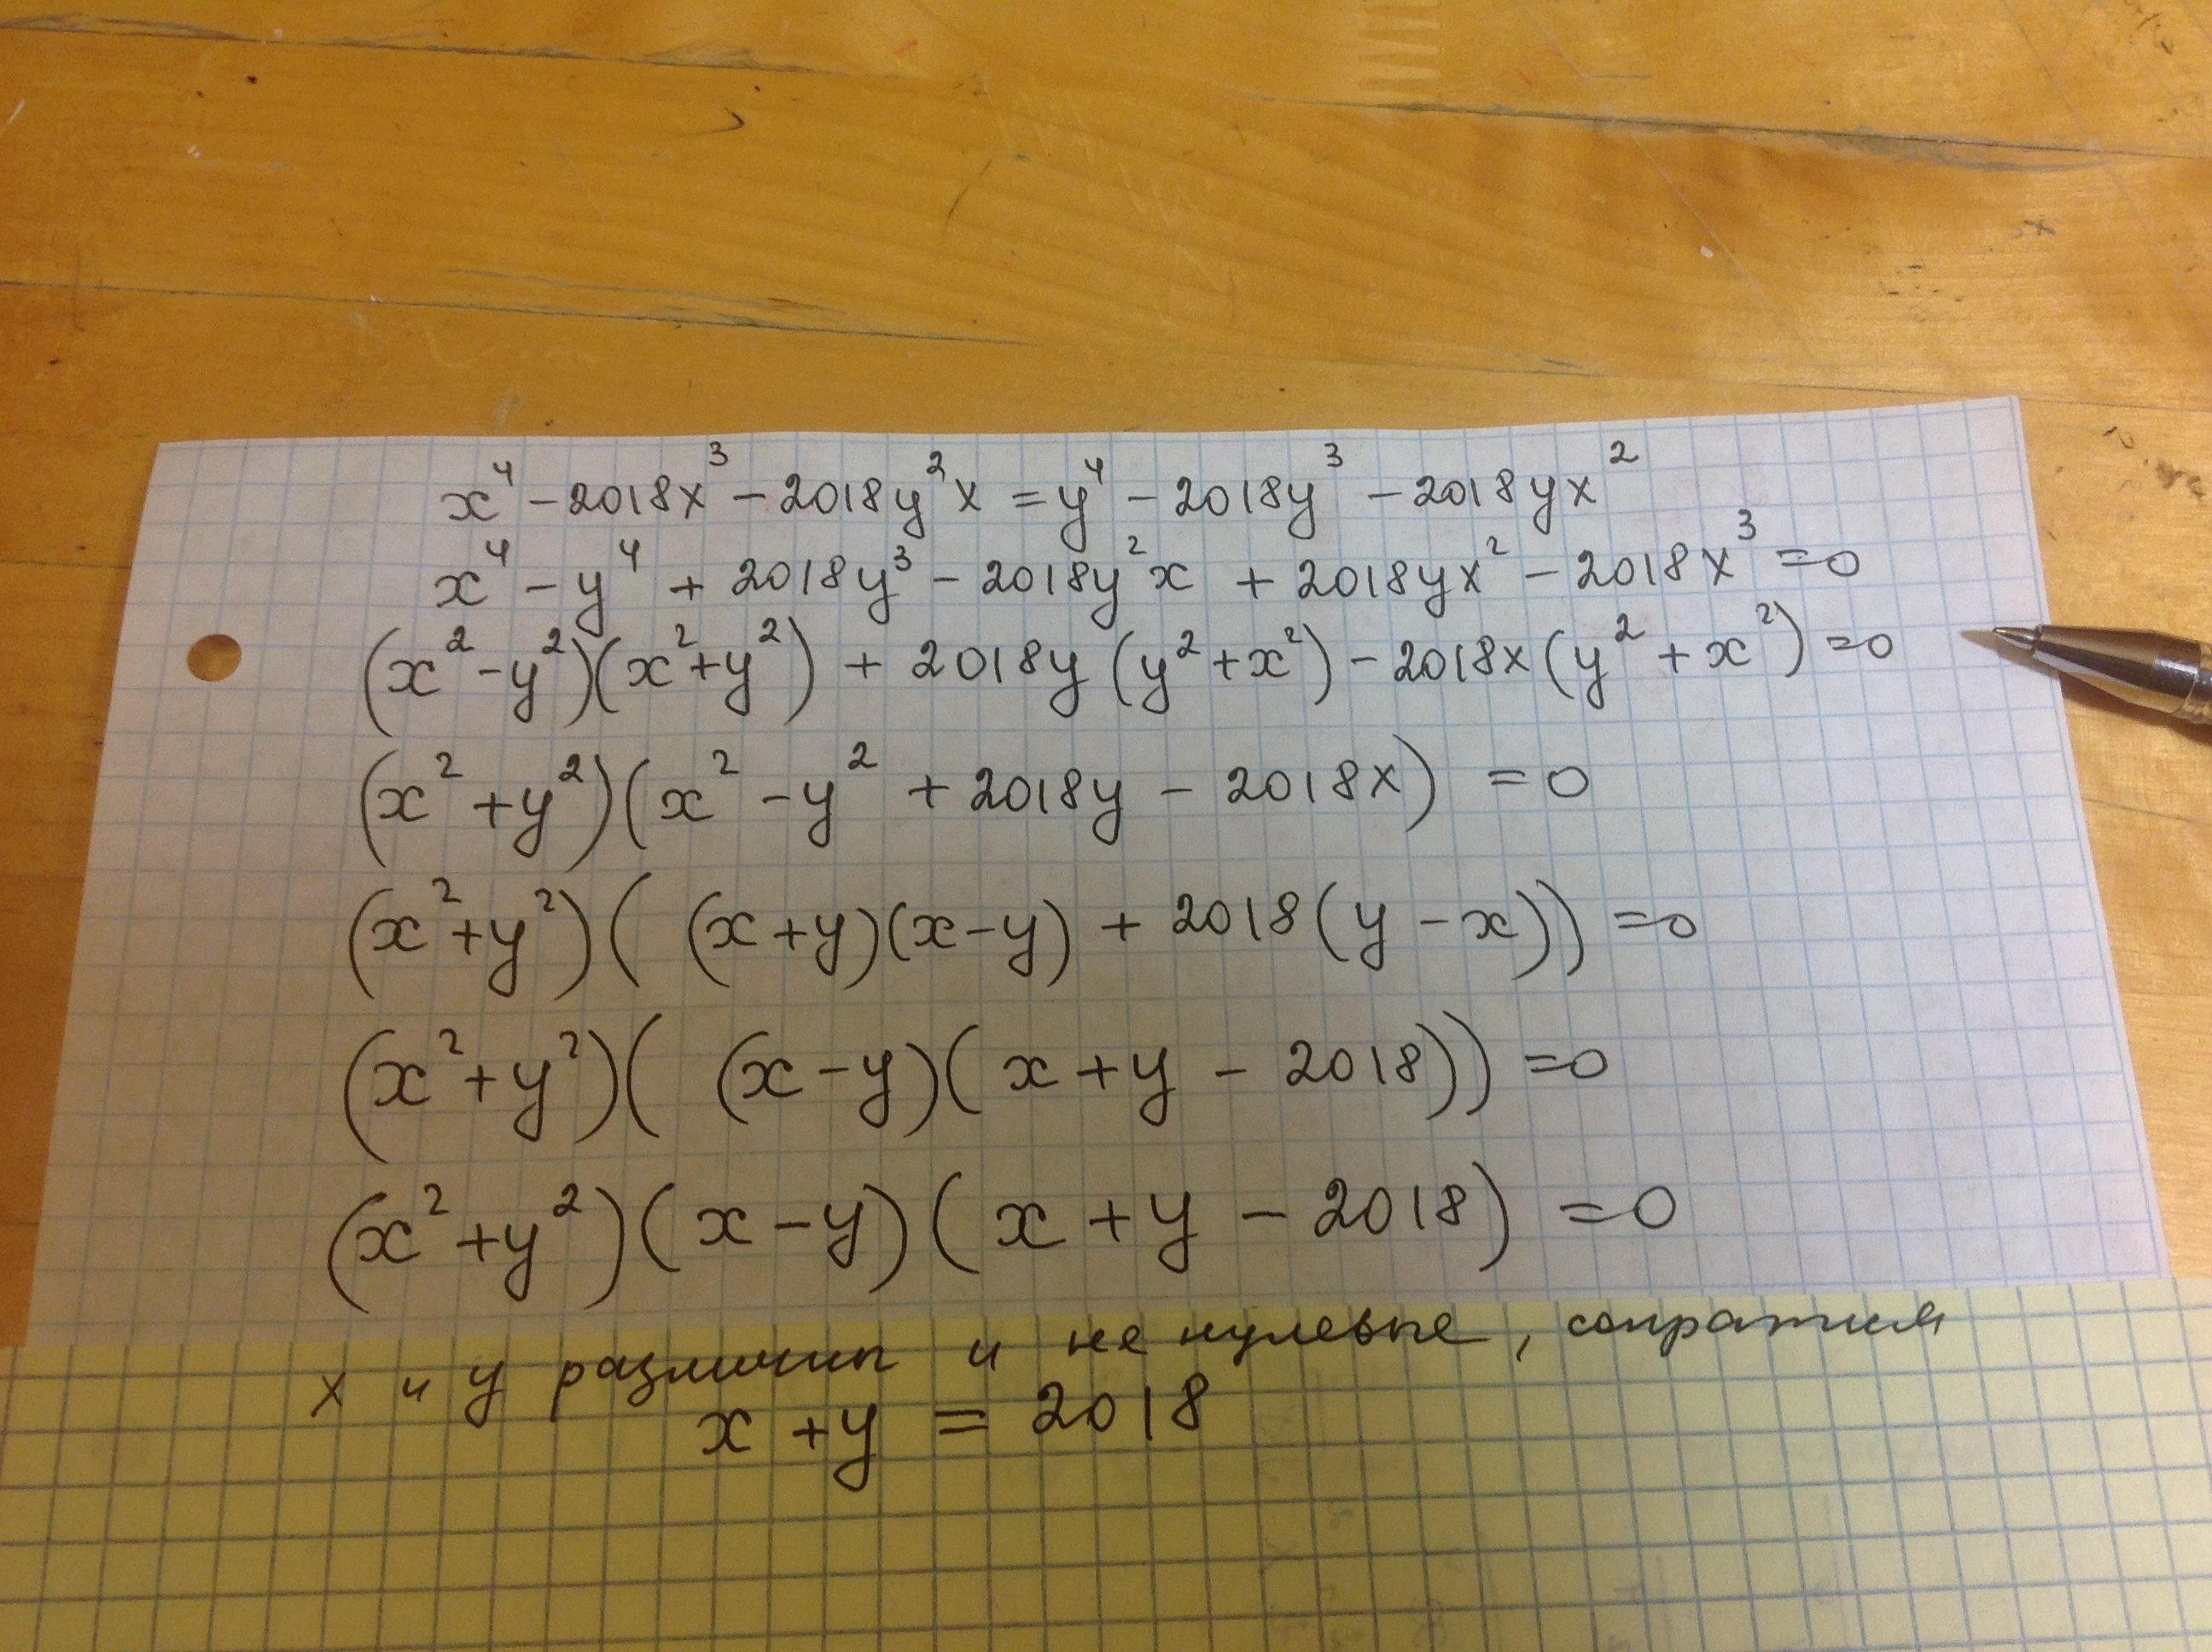 x⁴ - 2018x³ - 2018y²x = y⁴ - 2018y³ - 2018yx²
x⁴ - y⁴ + 2018y³ - 2018y²x + 2018yx² - 2018x³ = 0
(x² - y²)(x² + y²) + 2018y(y² + x²) - 2018x(y² + x²) = 0
(x² + y²)(x² - y² + 2018y - 2018x) = 0
(x² + y²)((x + y)(x - y) + 2018(y - x)) = 0
(x² + y²)((x - y)(x + y - 2018)) = 0
(x² + y²)(x - y)(x + y - 2018) = 0
x и y различны и не нулевые, сократим
x + y = 2018